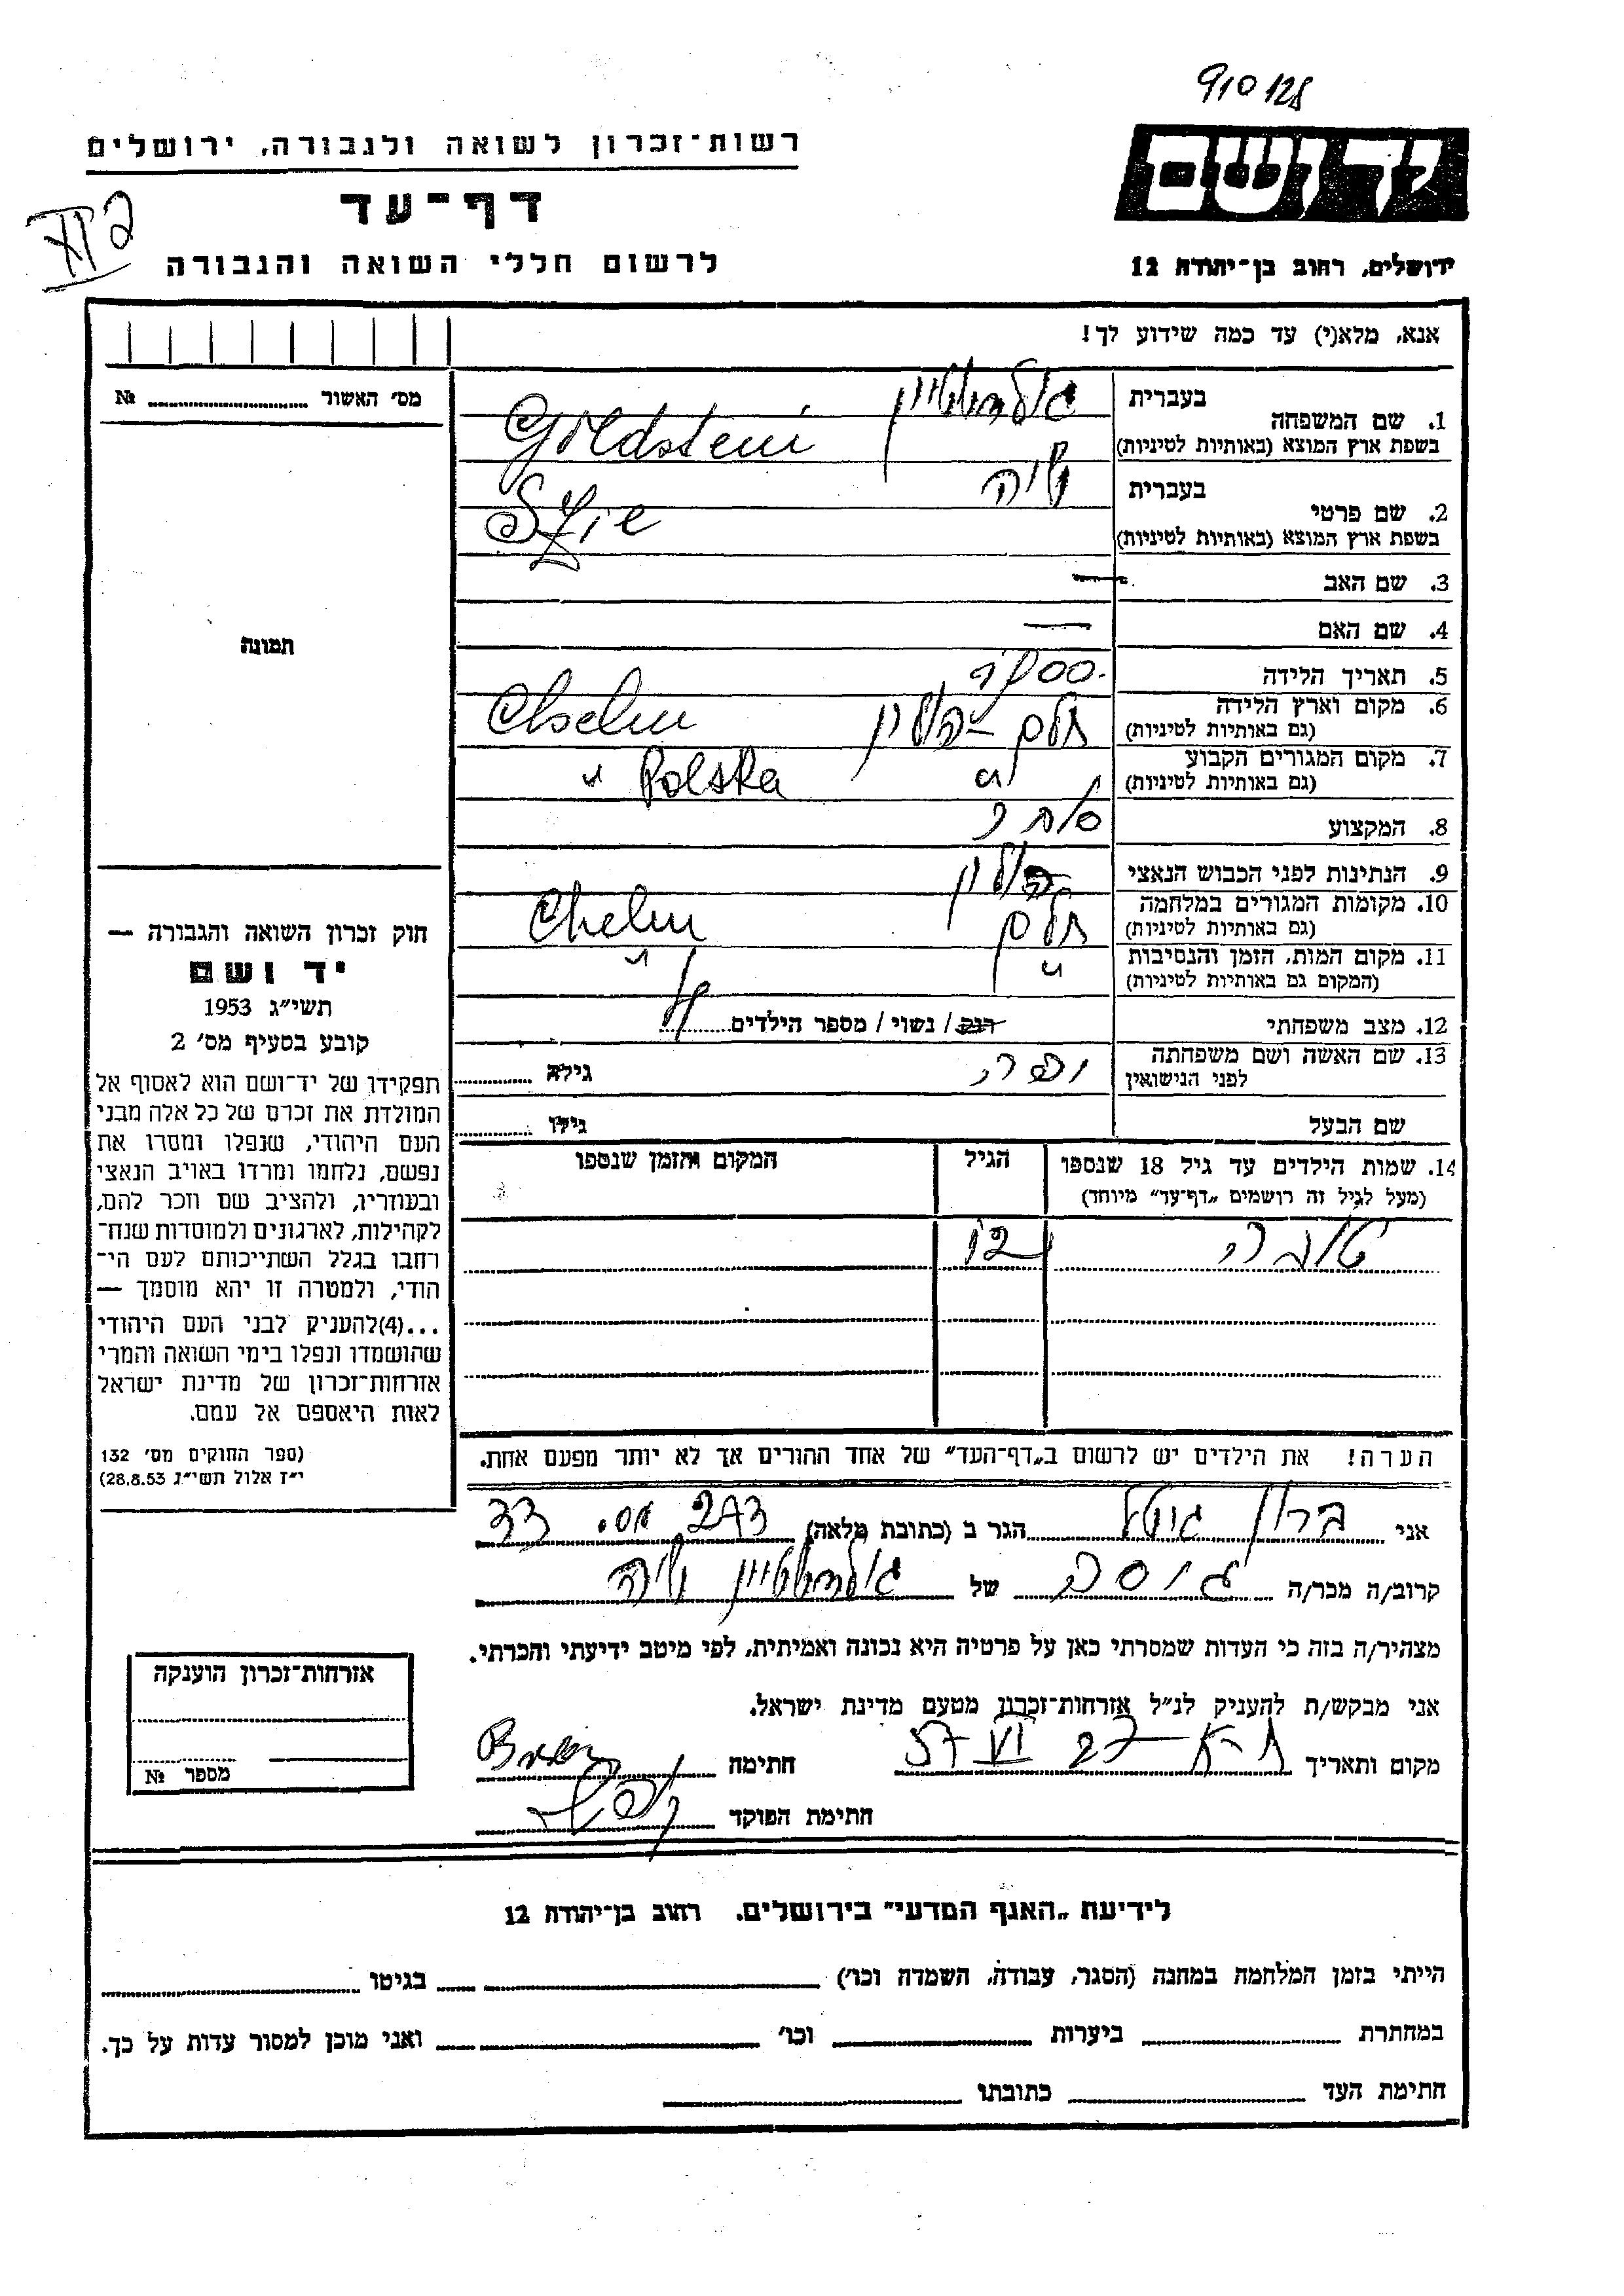 910128
רשות־זכרון לשואה ולגבורה, ירושלים
יד ושם
דף־עד
לרשום חללי השואה והגבורה
ירושלים, רחוב בן־יהודה 12
אנא, מלא(י) עד כמה שידוע לך!
מס' האשור № 
1. שם המשפחה בעברית גולדשטיין
בשפת ארץ המוצא (באותיות לטיניות) Goldstein
2. שם פרטי בעברית
בשפת ארץ המוצא (באותיות לטיניות)
3. שם האב —
4. שם האם —
תמונה
5. תאריך הלידה
6. מקום וארץ הלידה חלם – פולין Chelm
(גם באותיות לטיניות)
7. מקום המגורים הקבוע " " Polska
(גם באותיות לטיניות)
8. המקצוע סוחר
9. הנתינות לפני הכבוש הנאצי פולין
10. מקומות המגורים במלחמה חלם Chelm
(גם באותיות לטיניות)
11. מקום המות, הזמן והנסיבות " "
(המקום גם באותיות לטיניות)
12. מצב משפחתי רווק / נשוי / מספר הילדים
13. שם האשה ושם משפחתה לפני הנישואין גילה
שם הבעל גילו
14. שמות הילדים עד גיל 18 שנספו הגיל המקום והזמן שנספו
(מעל לגיל זה רושמים „דף־עד" מיוחד)
טובה 12
הערה! את הילדים יש לרשום ב„דף־העד" של אחד ההורים אך לא יותר מפעם אחת.
חוק זכרון השואה והגבורה —
יד ושם
תשי"ג 1953
קובע בסעיף מס' 2
תפקידן של יד־ושם הוא לאסוף אל
המולדת את זכרם של כל אלה מבני
העם היהודי, שנפלו ומסרו את
נפשם, נלחמו ומרדו באויב הנאצי
ובעוזריו, ולהציב שם וזכר להם,
לקהילות, לארגונים ולמוסדות שנח־
רחבו בגלל השתייכותם לעם הי־
הודי, ולמטרה זו יהא מוסמך —
...(4)להעניק לבני העם היהודי
שהושמדו ונפלו בימי השואה והמרי
אזרחות־זכרון של מדינת ישראל
לאות היאספם אל עמם.
(ספר החוקים מס' 132
י"ז אלול תשי"ג 28.8.53)
אני ברון גיטל הגר ב (כתובת מלאה) 273 33
קרוב/ה מכר/ה גיסה של גולדשטיין
מצהיר/ה בזה כי העדות שמסרתי כאן על פרטיה היא נכונה ואמיתית, לפי מיטב ידיעתי והכרתי.
אני מבקש/ת להעניק לנ"ל אזרחות־זכרון מטעם מדינת ישראל.
מקום ותאריך ת–א 27 VI 57 חתימה
חתימת הפוקד
אזרחות־זכרון הוענקה
מספר №
לידיעת „האגף המדעי" בירושלים. רחוב בן־יהודה 12
הייתי בזמן המלחמה במחנה (הסגר, עבודה, השמדה וכו') בגיטו
במחתרת ביערות וכו' ואני מוכן למסור עדות על כך.
חתימת העד כתובתו